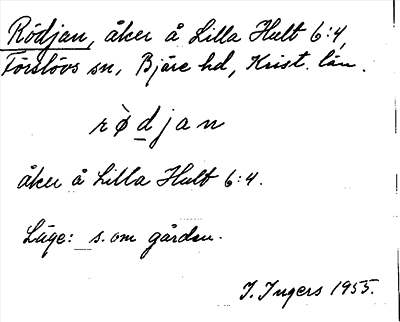 Rödjan, åker å Lilla Hult 6:4,
Förslövs sn, Bjäre hd, Krist. län.
rø̀djan
åker å Lilla Hult 6:4.
Läge: s. om gården.
I. Ingers 1955.